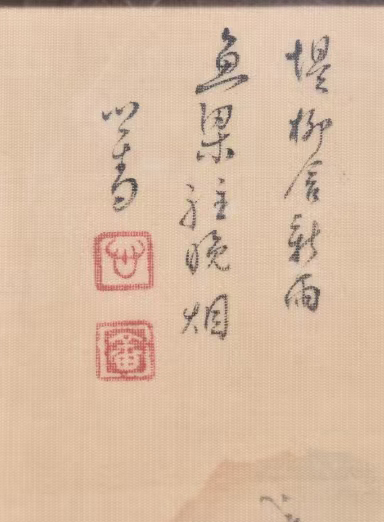 堤柳含新雨
魚梁駐晚烟
心畬